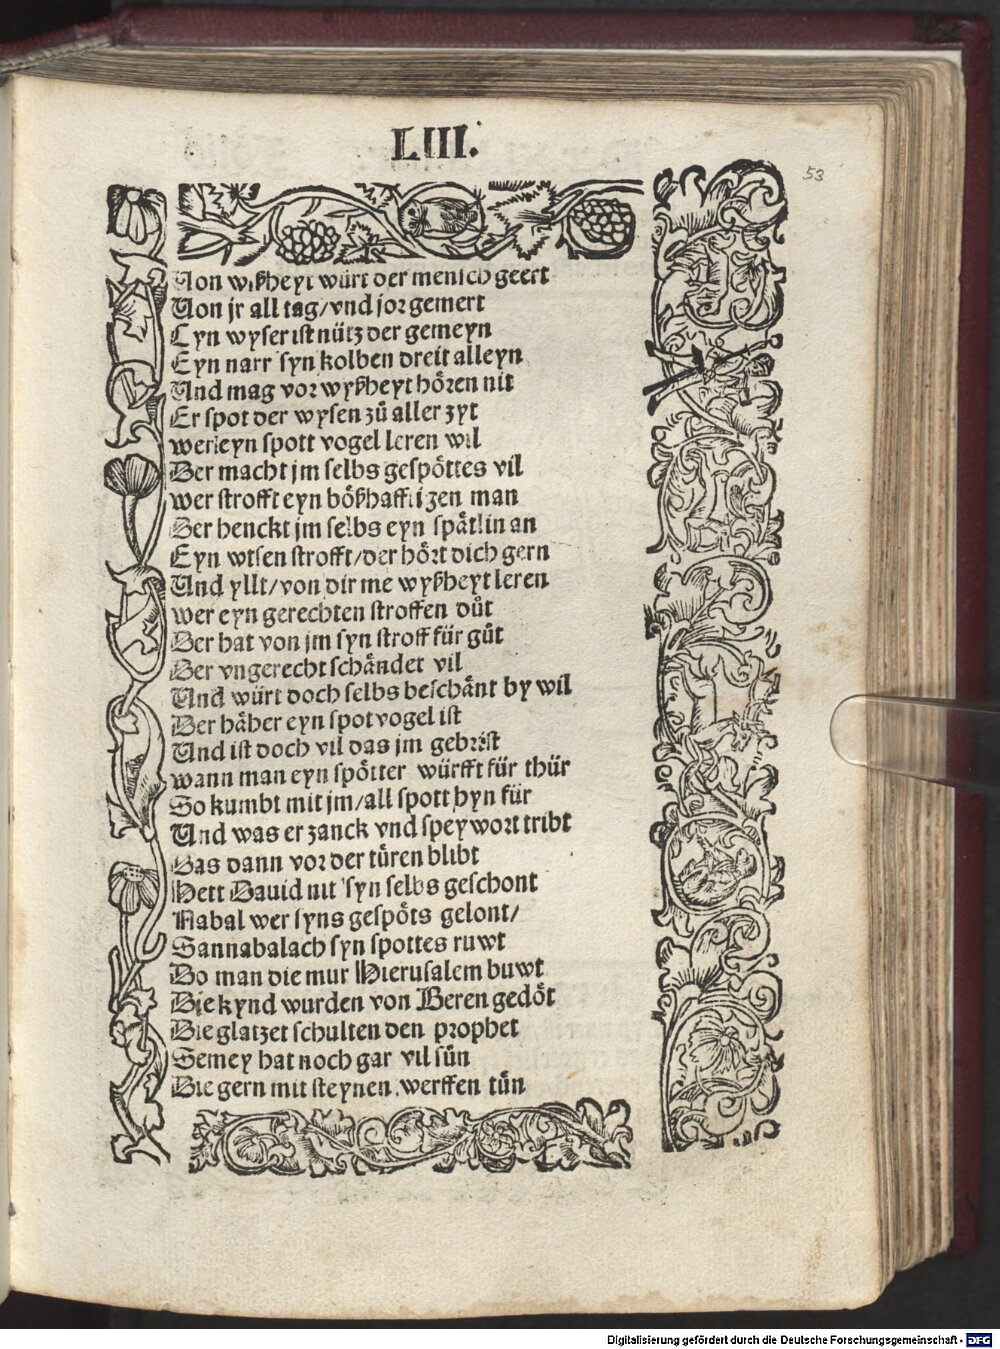 LIII.
53
Von wißheyt würt der mensch geert
Von jr all tag/vnd jor gemert
Eyn wyser ist nütz der gemeyn
Eyn narr syn kolben dreit alleyn
Vnd mag vor wyßheyt hören nit
Er spot der wysen zů aller zyt
wer eyn spott vogel leren wil
Der macht jm selbs gespöttes vil
wer strofft eyn bößhafftigen man
Der henckt jm selbs eyn spätlin an
Eyn wisen strofft/der hört dich gern
Vnd yllt/von dir me wyßheyt leren
wer eyn gerechten stroffen důt
Der hat von jm syn stroff für gůt
Der vngerecht schändet vil
Vnd würt doch selbs beschänt by wil
Der häher eyn spotvogel ist
Vnd ist doch vil das jm gebrist
wann man eyn spötter würfft für thür
So kumbt mit jm/all spott hyn für
Vnd was er zanck vnd speywort tribt
Das dann vor der türen blibt
Hett Dauid nit syn selbs geschont
Nabal wer syns gespöts gelont/
Sannabalach syn spottes ruwt
Do man die mur Hierusalem buwt
Die kynd wurden von Beren gedöt
Die glatzet schulten den prophet
Semey hat noch gar vil sün
Die gern mit steynen werffen tůn
Digitalisierung gefördert durch die Deutsche Forschungsgemeinschaft - DFG